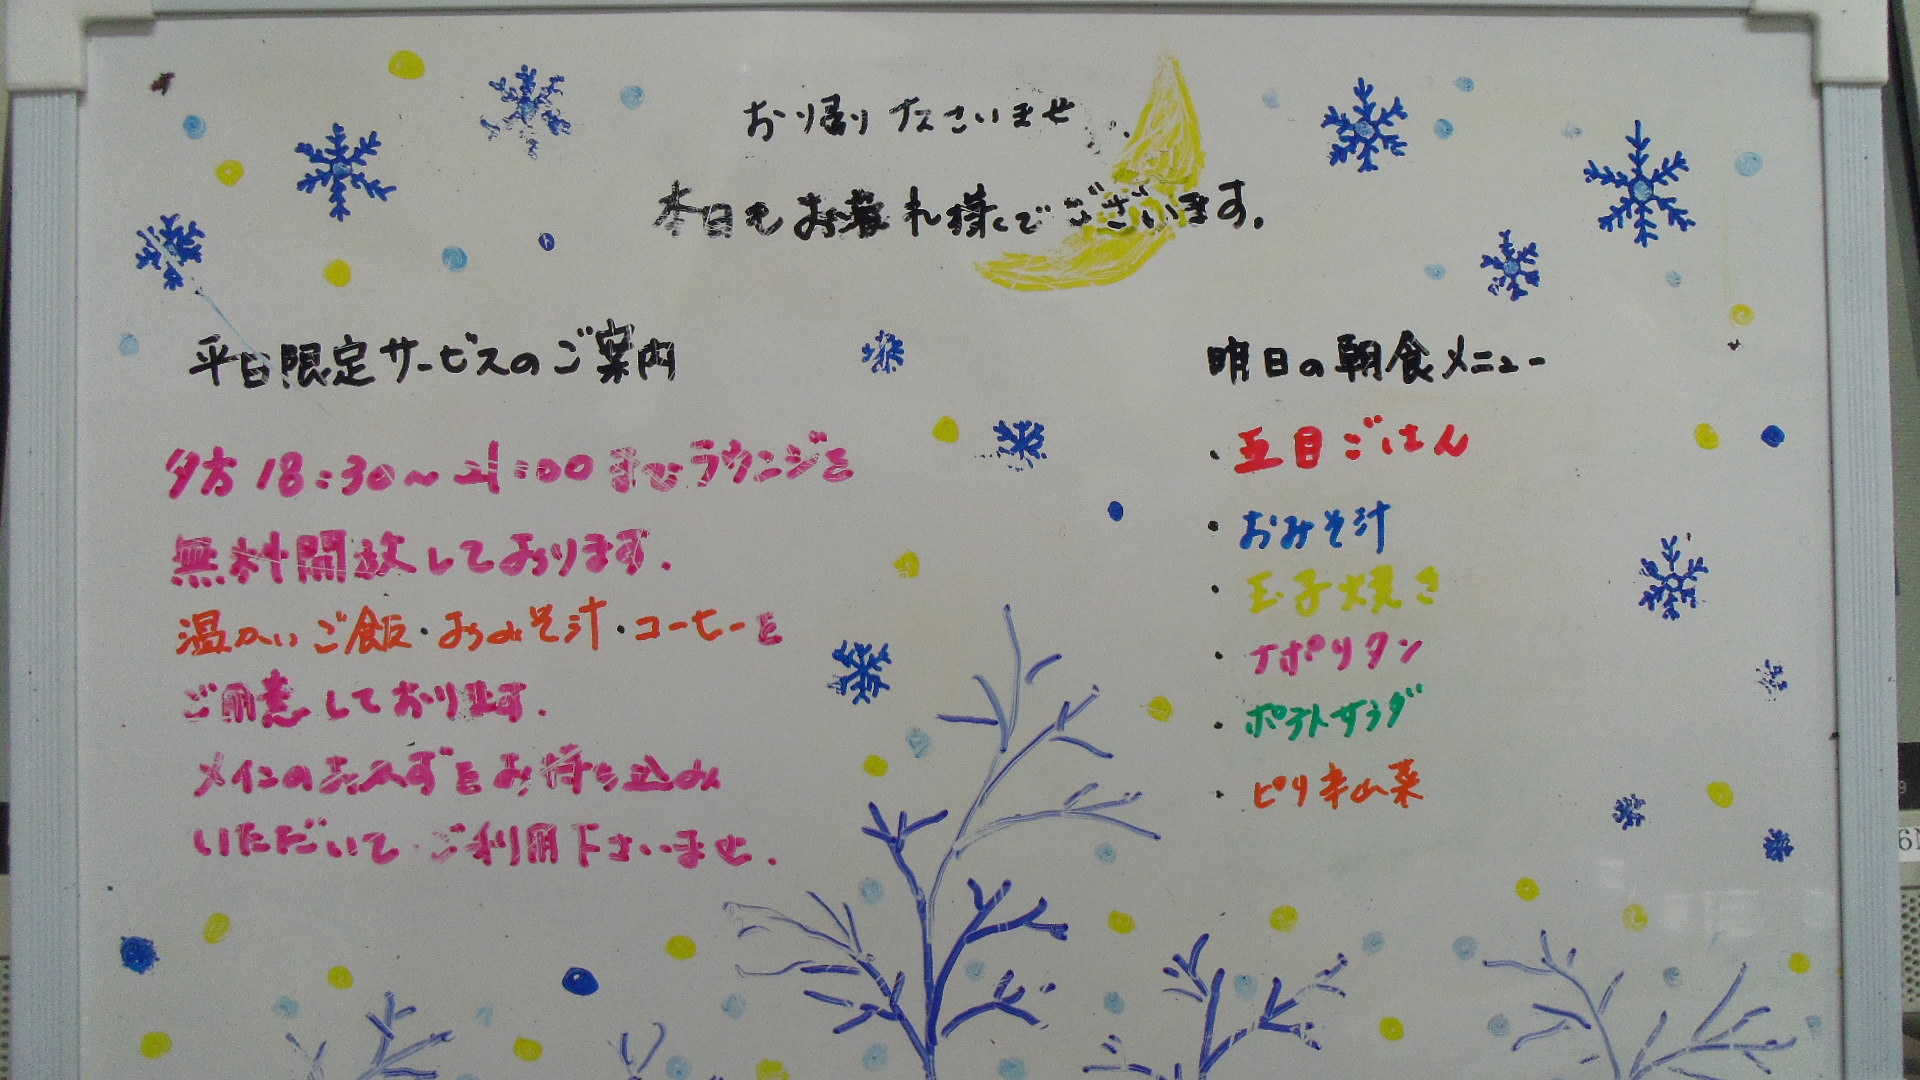 お帰りなさいませ
本日もお疲れ様でございます。
平日限定サービスのご案内
夕方18:30～21:00までラウンジを
無料開放しております。
温かいご飯・おみそ汁・コーヒーを
ご用意しております。
メインのおかずをお持ち込み
いただいてご利用下さいませ。
明日の朝食メニュー
・五目ごはん
・おみそ汁
・玉子焼き
・ナポリタン
・ポテトサラダ
・ピリ辛山菜